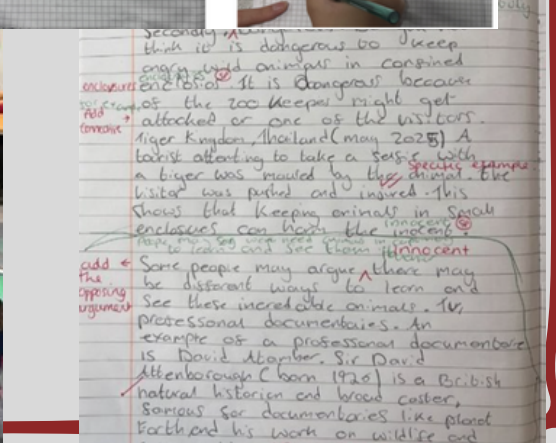 Secondly,
think it is dangerous to keep
angry wild animals in confined
enclosures enclosios. It is dangerous because
of the zoo keepers might get
add attacked or one of the visitors.
Tiger Kingdom, Thailand (may 2025) A
tourist attenting to take a selfie with
specific example
a tiger was mauled by the animal. The
visitor was pushed and injured. This
shows that keeping animals in small
innocent
enclosues can harm the inocent.
to learn and see them
Innocent
add ← Some people may argue ^ there may
the be different ways to learn and
opposing see these incredable animals. Tv,
argument professonal documentaies. An
example of a professonal documentare
is David Atamber. Sir David
Attenborough (born 1926) is a British
natural historian and broad caster,
famous for documentaries like planet
Earth and his work on wildlife and